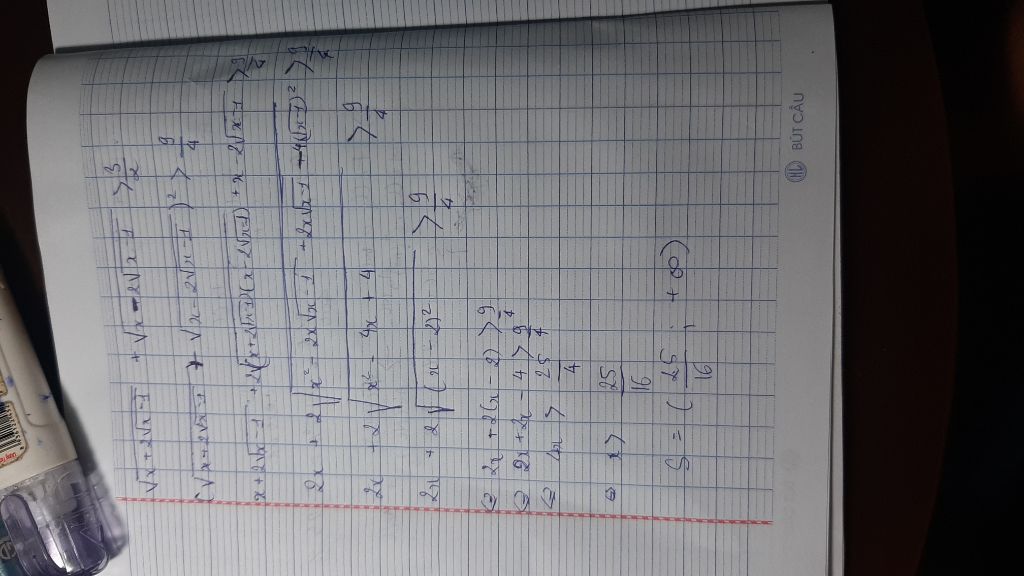 √(x+2√(x-1)) + √(x-2√(x-1)) > 3/2
(√(x+2√(x-1)) + √(x-2√(x-1)))² > 9/4
x+2√(x-1) + 2√((x+2√(x-1))(x-2√(x-1))) + x-2√(x-1) > 9/4
2x + 2√(x²-2x√(x-1)+2x√(x-1)-4(√(x-1))²) > 9/4
2x + 2√(x²-4x+4) > 9/4
2x + 2√((x-2)²) > 9/4
⇔ 2x+2(x-2) > 9/4
⇔ 2x+2x-4 > 9/4
⇔ 4x > 25/4
⇔ x > 25/16
S = (25/16; +∞)
BÚT CÂU